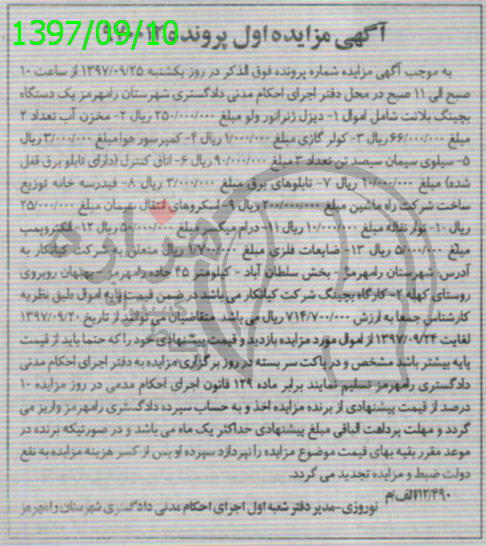 1397/09/10
آگهی مزایده اول پرونده
به موجب آگهی مزایده شماره پرونده فوق الذکر در روز یکشنبه ۱۳۹۷/۰۹/۲۵ از ساعت ۱۰
صبح الی ۱۱ صبح در محل دفتر اجرای احکام مدنی دادگستری شهرستان رامهرمز یک دستگاه
بچینگ بلانت شامل اموال ۱- دیزل ژنراتور ولو مبلغ ۲۵۰/۰۰۰/۰۰۰ ریال ۲- مخزن آب تعداد ۲
مبلغ ۶۶/۰۰۰/۰۰۰ ریال ۳- کولر گازی مبلغ ۱/۰۰۰/۰۰۰ ریال ۴- کمپرسور هوا مبلغ ۳/۰۰۰/۰۰۰ ریال
۵- سیلوی سیمان سیصد تن تعداد ۳ مبلغ ۹۰/۰۰۰/۰۰۰ ریال ۶- اتاق کنترل (دارای تابلو برق قفل
شده) مبلغ ۱۰/۰۰۰/۰۰۰ ریال ۷- تابلوهای برق مبلغ ۳/۰۰۰/۰۰۰ ریال ۸- فیدرسه خانه توزیع
ساخت شرکت راه ماشین مبلغ ۲۰۰/۰۰۰/۰۰۰ ریال ۹- اسکروهای انتقال سیمان مبلغ ۲۵/۰۰۰/۰۰۰
ریال ۱۰- نوار نقاله مبلغ ۱۰/۰۰۰/۰۰۰ ریال ۱۱- درام میکسر مبلغ ۵۰/۰۰۰/۰۰۰ ریال ۱۲- الکتروپمپ
مبلغ ۵/۰۰۰/۰۰۰ ریال ۱۳- ضایعات فلزی مبلغ ۱/۷۰۰/۰۰۰ ریال متعلق به شرکت کیانکار به
آدرس: شهرستان رامهرمز - بخش سلطان آباد - کیلومتر ۴۵ جاده رامهرمز - بهبهان روبروی
روستای کهله ۲- کارگاه بچینگ شرکت کیانکار می باشد در ضمن قیمت پایه اموال طبق نظریه
کارشناس جمعا به ارزش ۷۱۴/۷۰۰/۰۰۰ ریال می باشد. متقاضیان می توانند از تاریخ ۱۳۹۷/۰۹/۲۰
لغایت ۱۳۹۷/۰۹/۲۴ از اموال مورد مزایده بازدید و قیمت پیشنهادی خود را که حتما باید از قیمت
پایه بیشتر باشد مشخص و در پاکت سر بسته در روز برگزاری مزایده به دفتر اجرای احکام مدنی
دادگستری رامهرمز تسلیم نمایند برابر ماده ۱۲۹ قانون اجرای احکام مدنی در روز مزایده ۱۰
درصد از قیمت پیشنهادی از برنده مزایده اخذ و به حساب سپرده دادگستری رامهرمز واریز می
گردد و مهلت پرداخت الباقی مبلغ پیشنهادی حداکثر یک ماه می باشد و در صورتیکه برنده در
موعد مقرر بقیه بهای قیمت موضوع مزایده را نپردازد سپرده او پس از کسر هزینه مزایده به نفع
دولت ضبط و مزایده تجدید می گردد.
۱۲/۴۹۰/الف/م
نوروزی-مدیر دفتر شعبه اول اجرای احکام مدنی دادگستری شهرستان رامهرمز